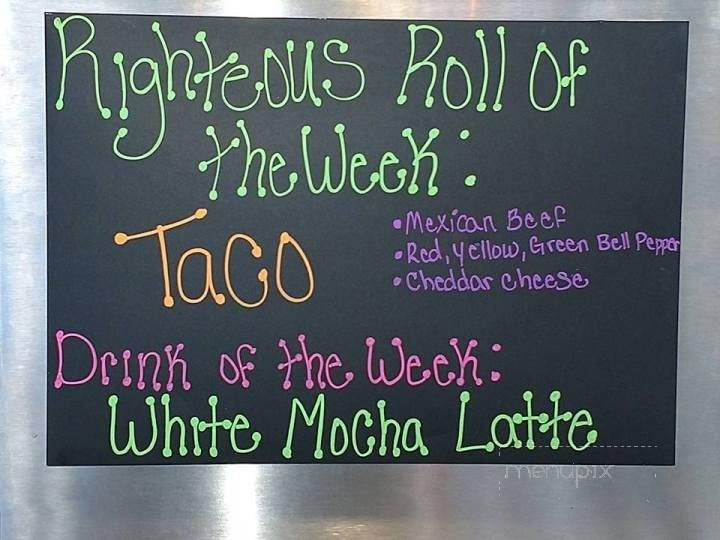 Righteous Roll Of
the Week:
Taco
• Mexican Beef
• Red, Yellow, Green Bell Pepper
• Cheddar Cheese
Drink of the Week:
White Mocha Latte
menupix